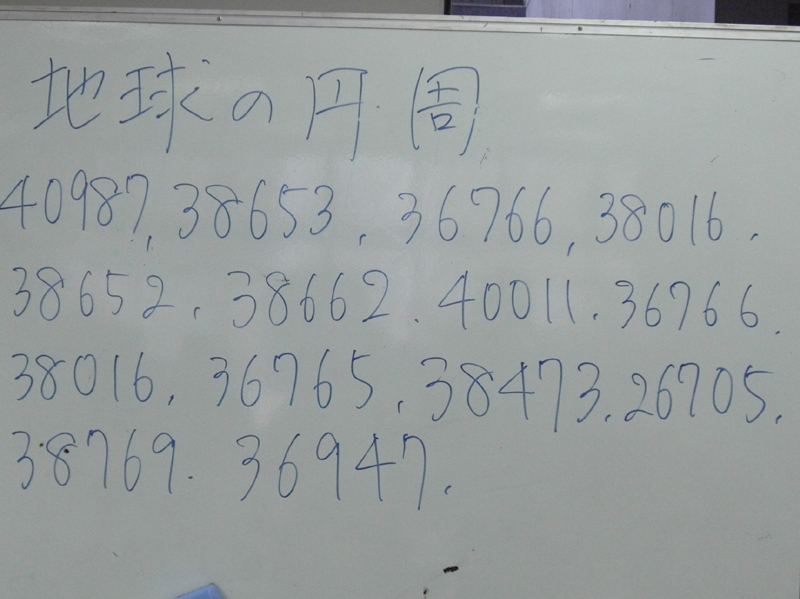 地球の円周
40987, 38653, 36766, 38016.
38652, 38662. 40011. 36766.
38016, 36765, 38473. 26705.
38769. 36947.